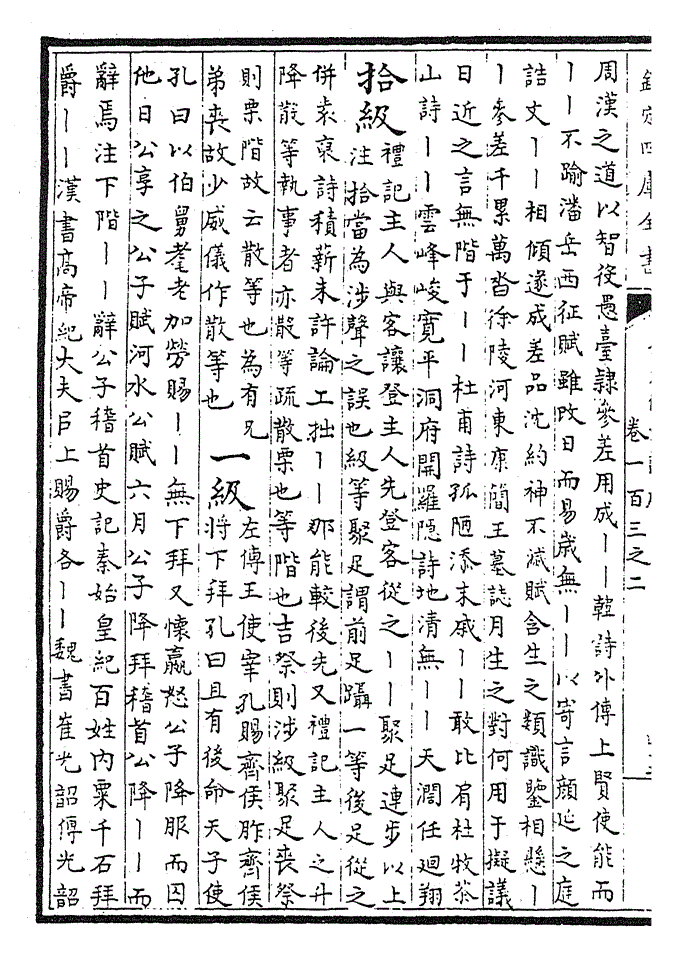 欽定四庫全書
卷一百三之二
周漢之道以智役愚臺隸參差用成丨丨韓詩外傳上賢使能而
丨丨不踰潘岳西征賦雖改日而易歲無丨丨以寄言顏延之庭
誥丈丨丨相傾遂成差品沈約神不滅賦含生之類識鑒相懸丨
丨參差千累萬沓徐陵河東康簡王墓誌月生之對何用于擬議
日近之言無階于丨丨杜甫詩孤陋添末戚丨丨敢比肩杜牧茶
山詩丨丨雲峰峻寛平洞府開羅隱詩地清無丨丨天濶任廻翔
拾級
禮記主人與客讓登主人先登客從之丨丨聚足連步以上
注拾當為涉聲之誤也級等聚足謂前足躡一等後足從之
併袁裒詩積薪未許論工拙丨丨那能較後先又禮記主人之升
降散等執事者亦散等疏散栗也等階也吉祭則涉級聚足喪祭
則栗階故云散等也為有兄
弟喪故少威儀作散等也
一級
左傳王使宰孔賜齊侯胙齊侯
將下拜孔曰且有後命天子使
孔曰以伯舅耄老加勞賜丨丨無下拜又懷嬴怒公子降服而囚
他日公享之公子賦河水公賦六月公子降拜稽首公降丨丨而
辭焉注下階丨丨辭公子稽首史記秦始皇紀百姓内粟千石拜
爵丨丨漢書髙帝紀大夫㠯上賜爵各丨丨魏書崔光韶傳光韶